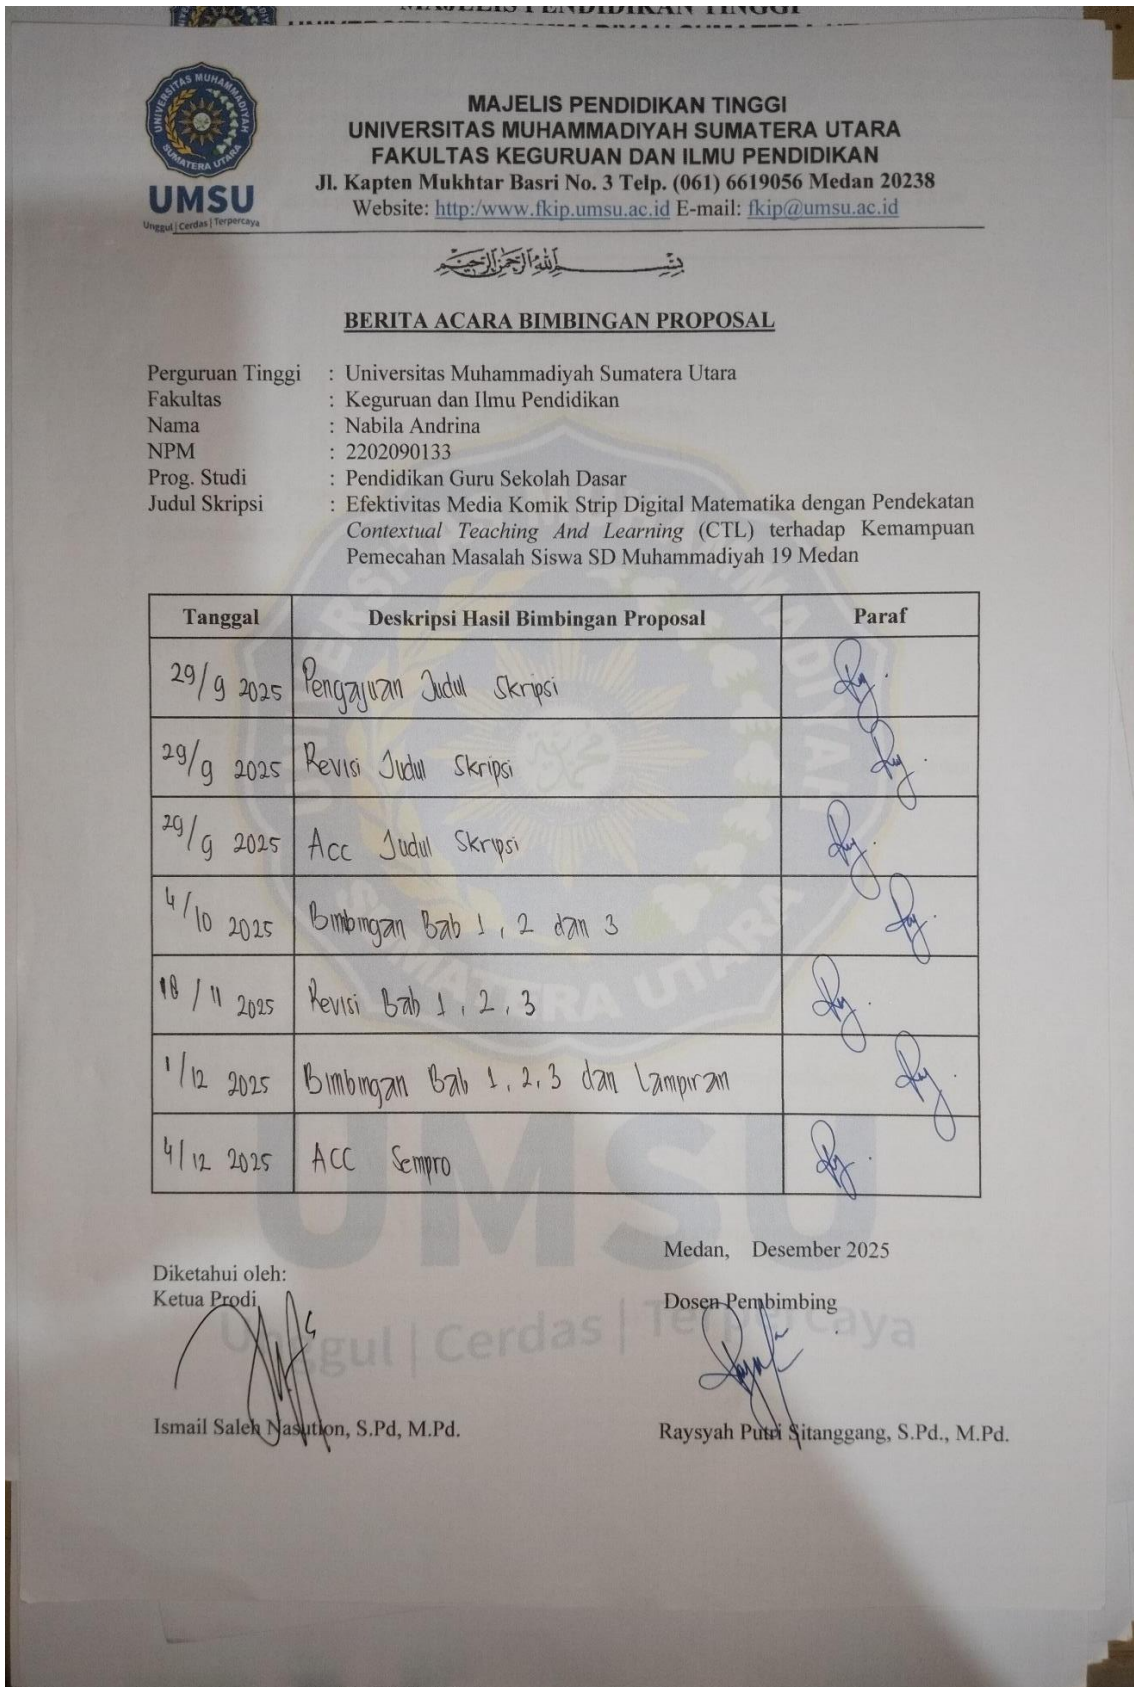 MAJELIS PENDIDIKAN TINGGI
UNIVERSITAS MUHAMMADIYAH SUMATERA UTARA
MAJELIS PENDIDIKAN TINGGI
UNIVERSITAS MUHAMMADIYAH SUMATERA UTARA
FAKULTAS KEGURUAN DAN ILMU PENDIDIKAN
Jl. Kapten Mukhtar Basri No. 3 Telp. (061) 6619056 Medan 20238
Website: http:/www.fkip.umsu.ac.id E-mail: fkip@umsu.ac.id
UNIVERSITAS MUHAMMADIYAH
SUMATERA UTARA
UMSU
Unggul | Cerdas | Terpercaya
بِسْمِ اللهِ الرَّحْمٰنِ الرَّحِيْمِ
BERITA ACARA BIMBINGAN PROPOSAL
Perguruan Tinggi : Universitas Muhammadiyah Sumatera Utara
Fakultas : Keguruan dan Ilmu Pendidikan
Nama : Nabila Andrina
NPM : 2202090133
Prog. Studi : Pendidikan Guru Sekolah Dasar
Judul Skripsi : Efektivitas Media Komik Strip Digital Matematika dengan Pendekatan
Contextual Teaching And Learning (CTL) terhadap Kemampuan
Pemecahan Masalah Siswa SD Muhammadiyah 19 Medan
Tanggal Deskripsi Hasil Bimbingan Proposal Paraf
29/9 2025 Pengajuan Judul Skripsi
29/9 2025 Revisi Judul Skripsi
29/9 2025 Acc Judul Skripsi
4/10 2025 Bimbingan Bab 1, 2 dan 3
18/11 2025 Revisi Bab 1, 2, 3
1/12 2025 Bimbingan Bab 1, 2, 3 dan Lampiran
4/12 2025 ACC Sempro
UMSU
Unggul | Cerdas | Terpercaya
Medan, Desember 2025
Diketahui oleh:
Ketua Prodi Dosen Pembimbing
Ismail Saleh Nasution, S.Pd, M.Pd. Raysyah Putri Sitanggang, S.Pd., M.Pd.